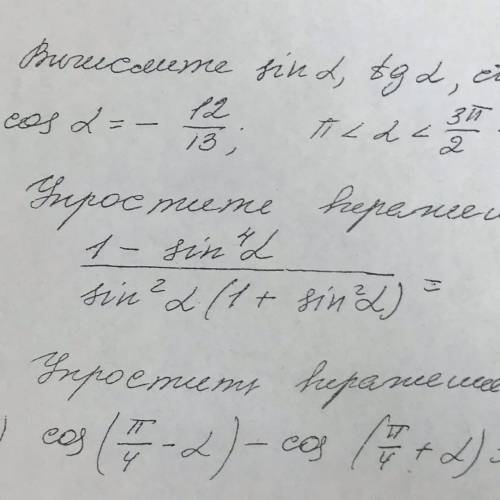 Вычислите sin α, tg α, ct
cos α = - 12/13; π < α < 3π/2
Упростите выражен
(1 - sin⁴α)/(sin²α (1 + sin²α)) =
Упростить выражение
) cos(π/4 - α) - cos(π/4 + α) =